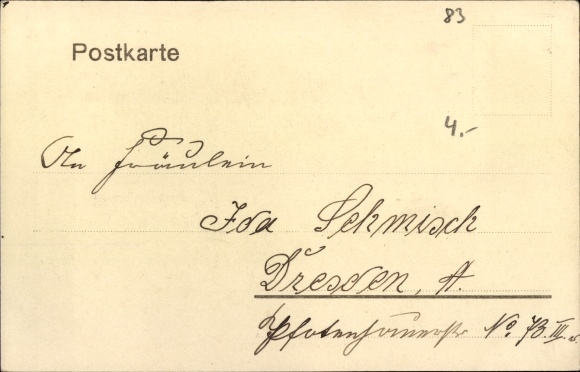 83
Postkarte
4.-
An Fräulein
Ida Schmisch
Dresden, A.
Pfotenhauerstr No. 73. III.